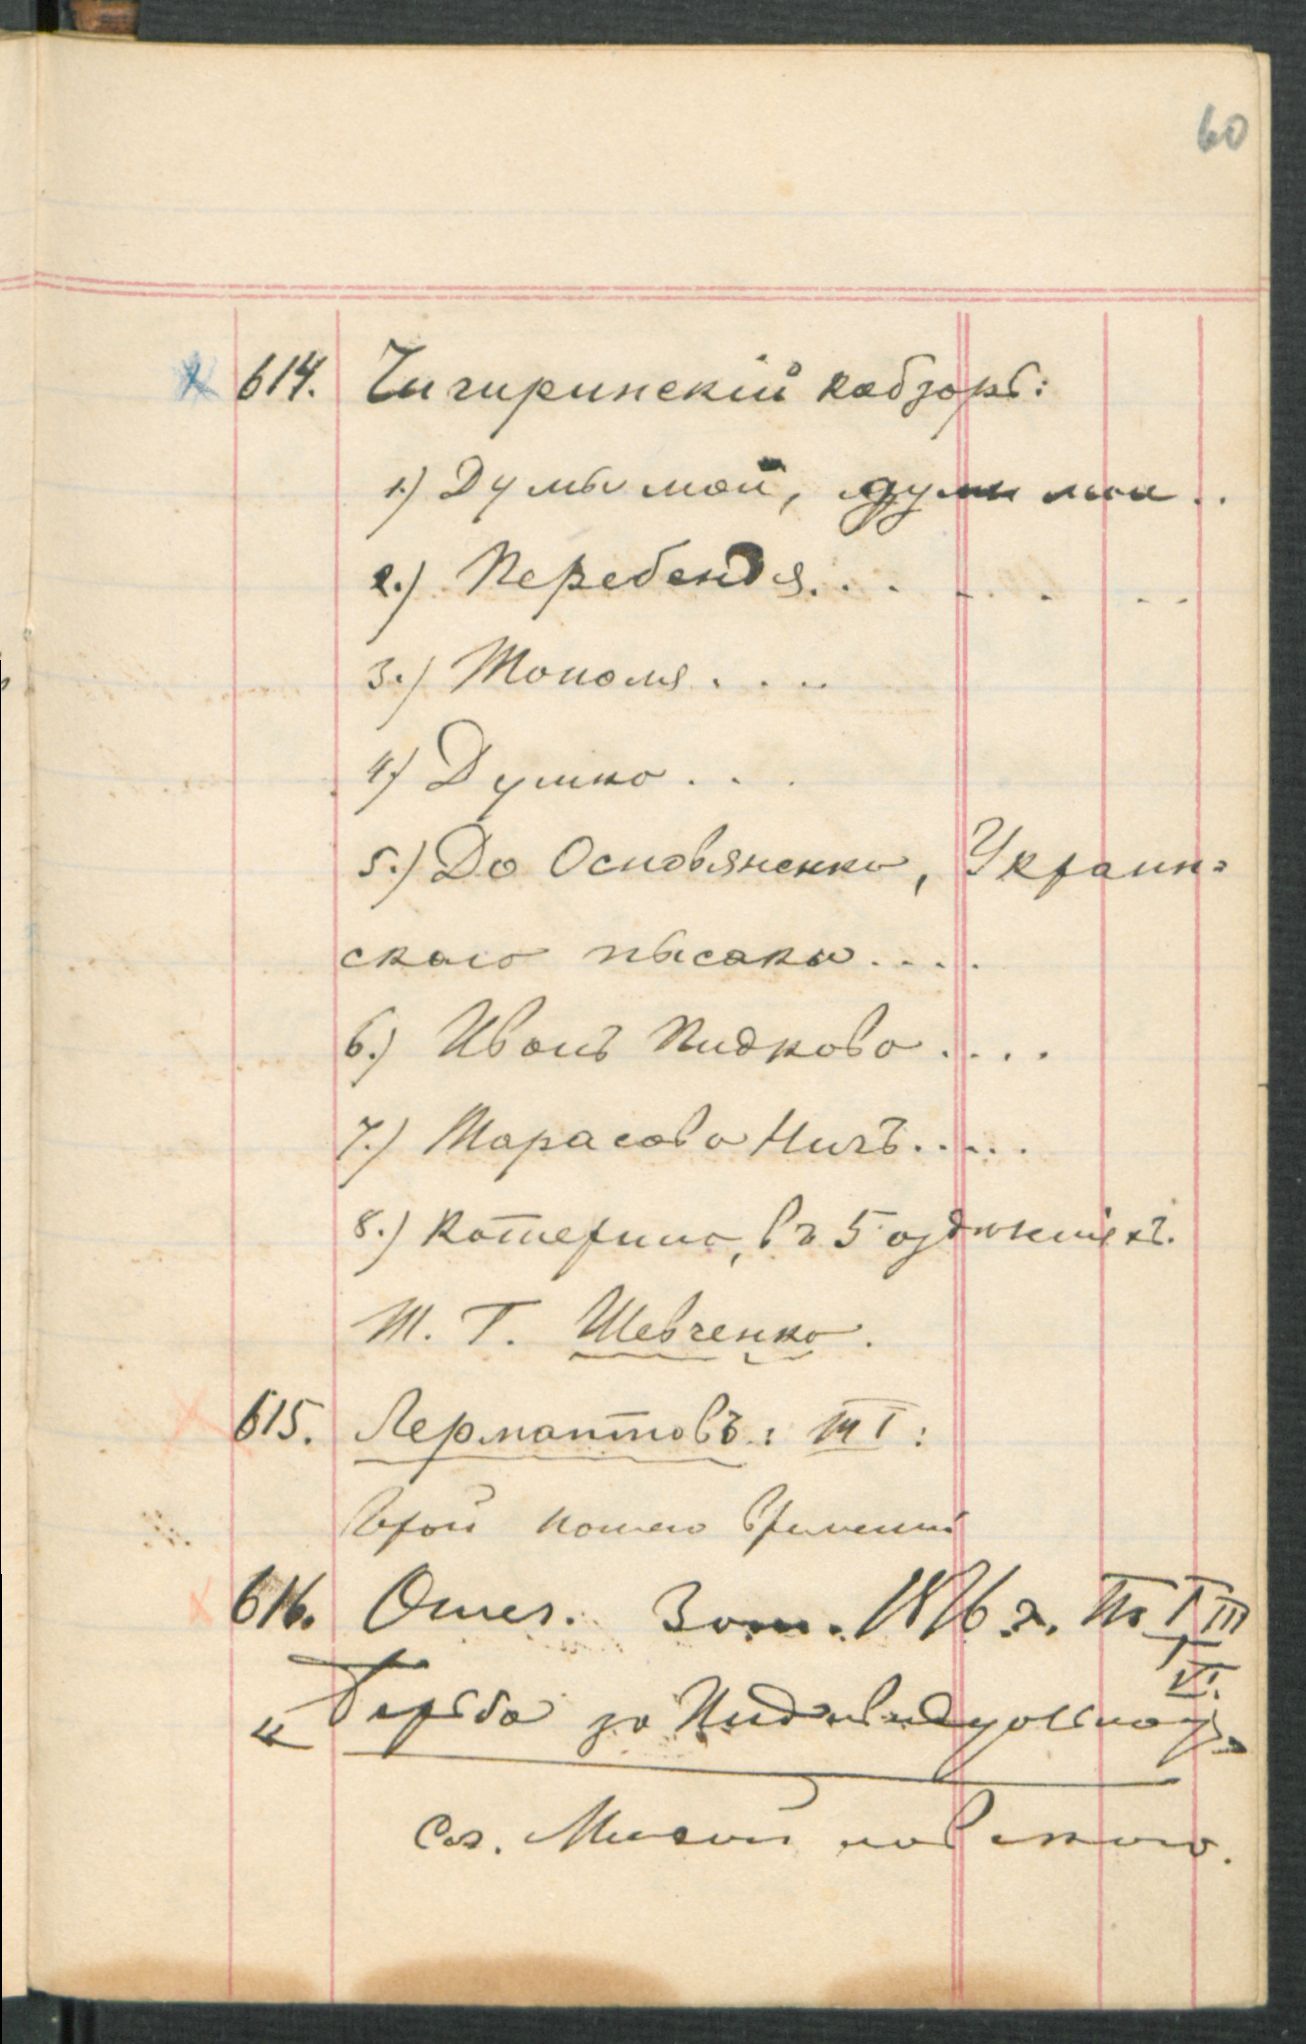 60
614. Чигиринскій кабзарь:
1.) Думы мой, думы мои..
2.) Перебендя. . . . . . . .
3.) Тополя. . . .
4.) Думка. . .
5.) До Основяненка, Украин=
скаго пысака. . . .
6.) Иванъ Пидкова. . . .
7.) Тарасова Ничъ. . . . .
8.) Катерина, въ 5 оддюкиіяхъ.
Т. Г. Шевченко.
615. Лермантовъ: т I:
Герой нашего времени
616. Отеч. Зап. 1876 г. № I III
VI.
„Борьба за Индивидуальност"
Соч. Михайловскаго.